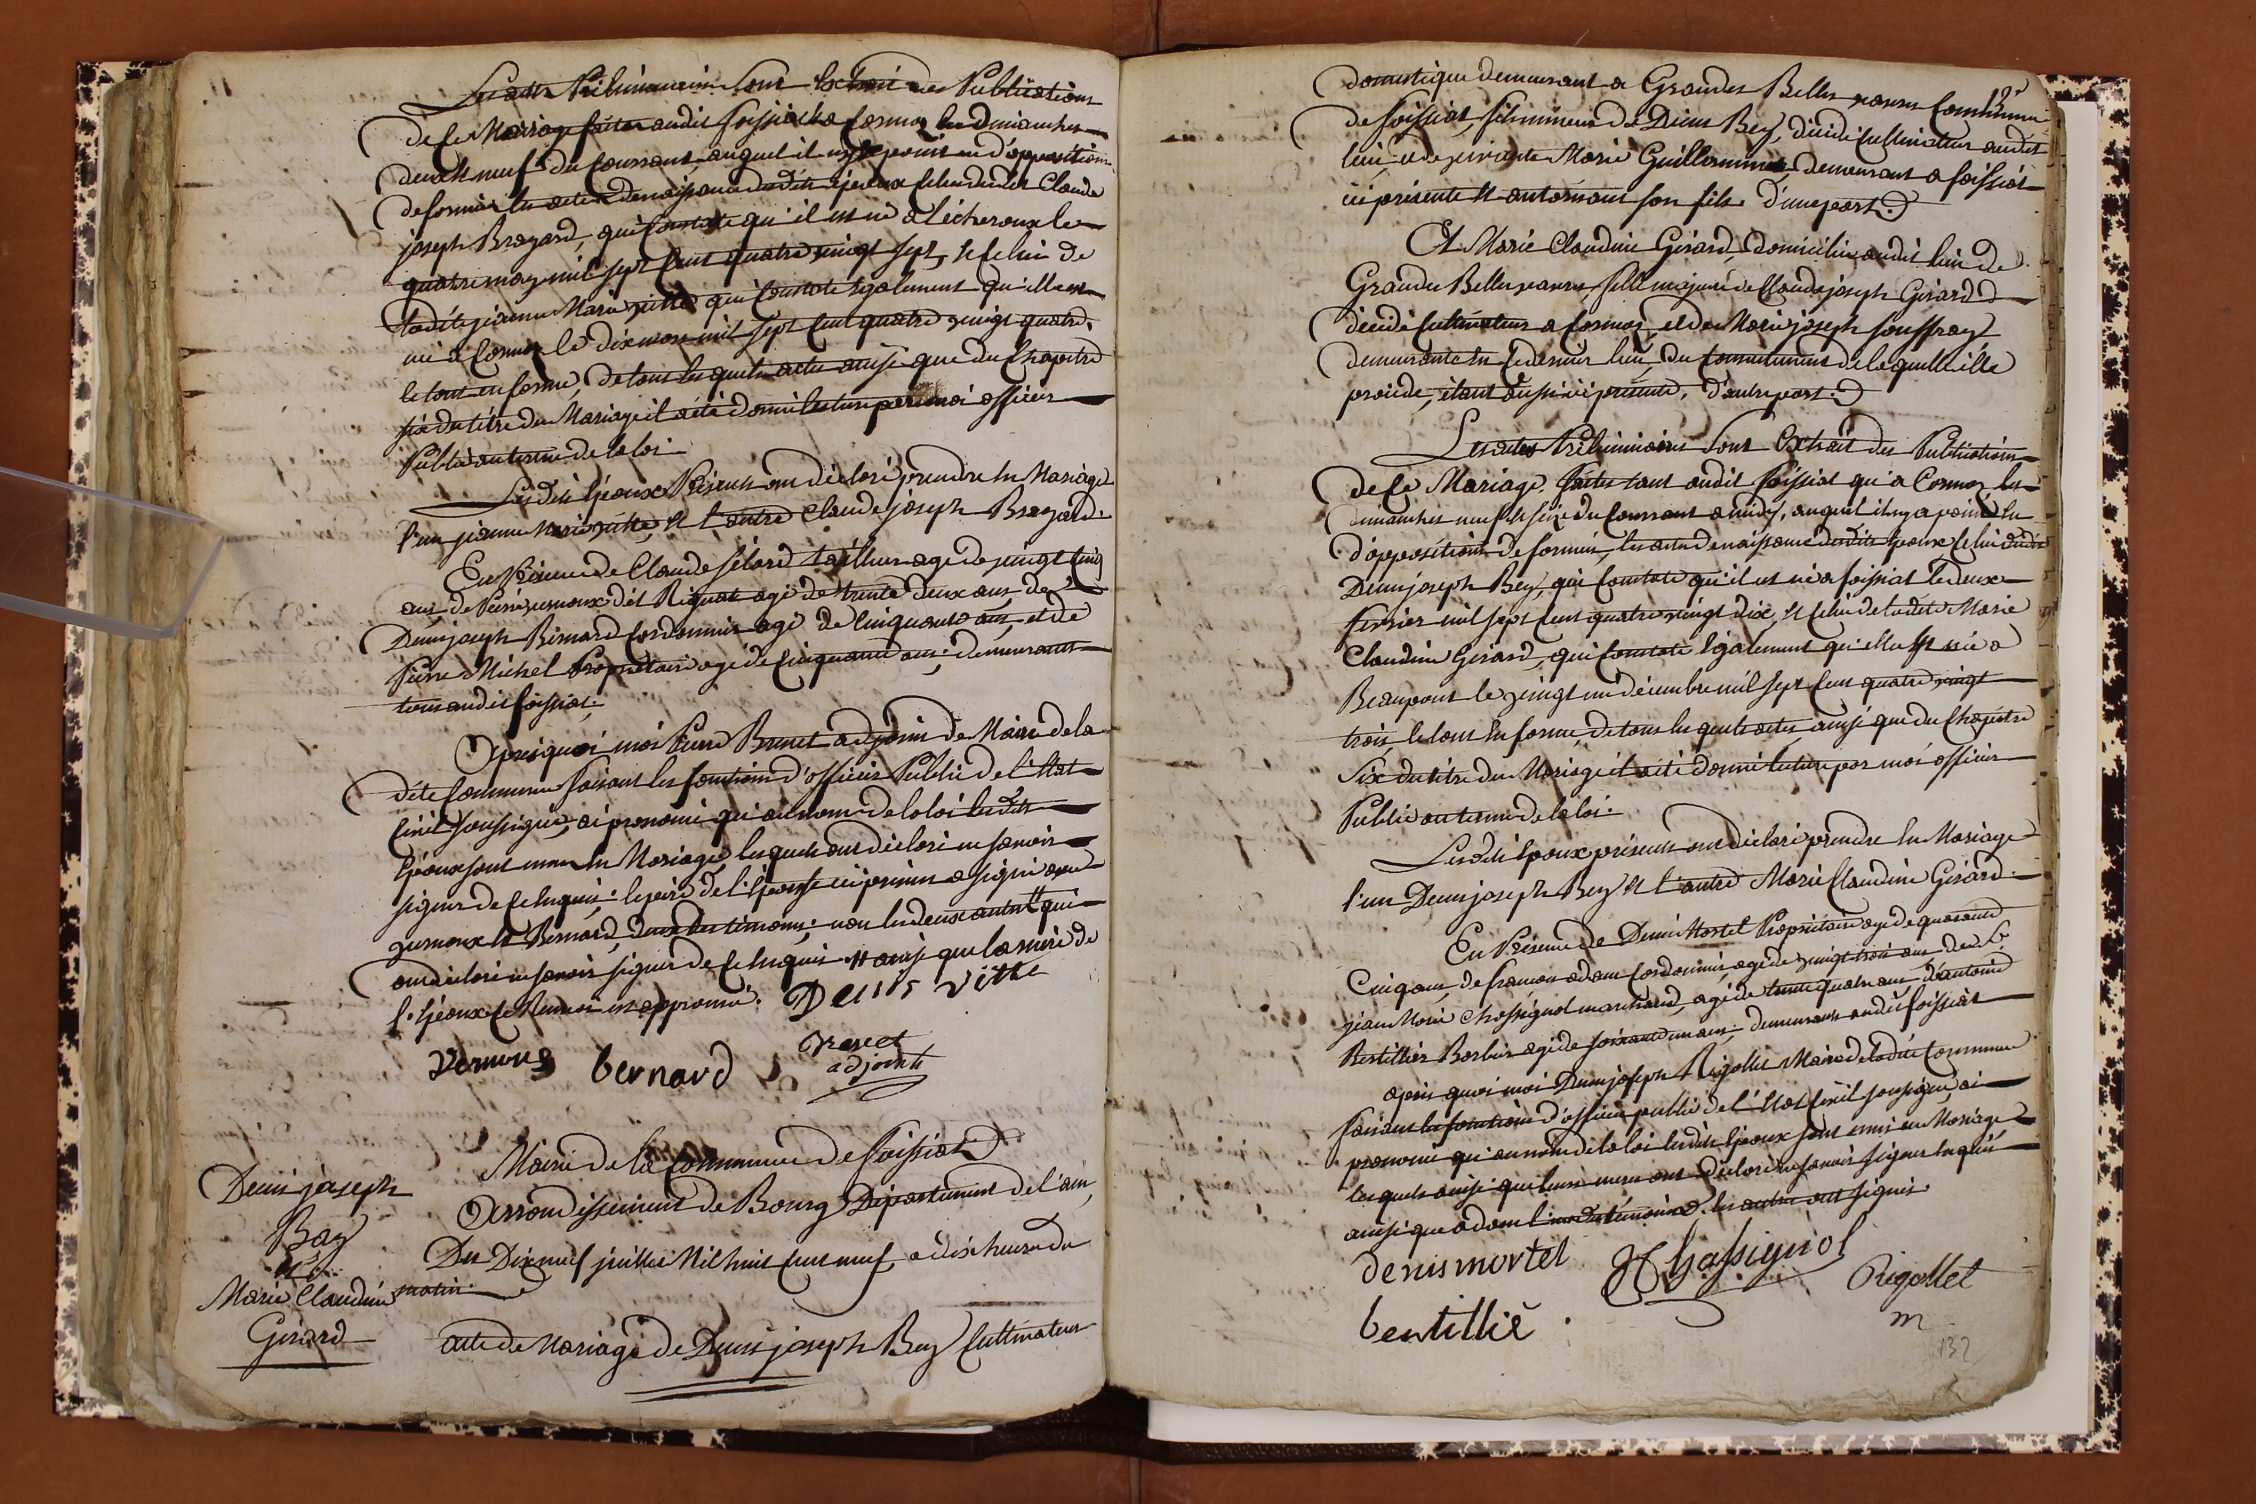 Les actes Préliminaires sont Extrait des Publications
de ce Mariage faites audit foissiat & a Cormoz les dimanches
deux & neuf du Courrant, auquel il n'y a point eu d'opposition
de formée les actes de naissance desdits époux Celui dudit Claude
joseph Brazard, qui Constate qu'il est né a Lécheroux le
quatre may mil sept Cent quatre vingt sept, & Celui de
ladite jeanne Marie vitte qui Constate également qu'elle est
née a Cormoz le dix mars mil sept Cent quatre vingt quatre,
le tout en forme, de tous lesquels actes ainsi que du Chapitre
six du titre du Mariage il a été donné lecture par moi officier
Public au terme de la loi
Lesdits Epoux Présents ont déclaré prendre En Mariage
l'un jeanne Marie vitte, & l'autre Claude joseph Brazard.
En Présence de Claude félard tailleur age de vingt Cinq
ans, de Pierre vernoux dit Riquat agé de trente deux ans, de
Denis joseph Bernard Cordonnier agé de Cinquante ans, et de
Pierre Michel Propriétaire agé de Cinquante ans; demeurants
tous audit foissiat;
Apres quoi moi Pierre Brunet adjoint de Maire de la
dite Commune faisant les fonctions d'officier Public de l'Etat
Civil soussigné, ai prononcé qu'au nom de la loi lesdits
Epoux sont unis En Mariage, lesquels ont déclaré ne savoir
signer de Ce Enquis; le père de l'Epouse ici présent a signé avec
vernoux & Bernard, deux des témoins; non les deux autres qui
ont déclaré ne savoir signer de Ce Enquis & ainsi que la mère de
l'Epoux
Denis vitte
vernous bernard
adjoint
Denis joseph
Bey
&
Marie Claudine
Girard
Mairie de la Commune de foissiat
Arrondissement de Bourg Département de l'ain,
Du Dix neuf juillet Mil huit Cent neuf, a dix heures du
matin.
acte de Mariage de Denis joseph Bey Cultivateur
domestique demeurant a Grandes Belles vavres Commune
de foissiat, fils mineur de Denis Bey, décédé Cultivateur audit
lieu, & de vivante Marie Guillermin, demeurant a foissiat
ici présente & autorisant son fils. d'une part.
Et Marie Claudine Girard, domiciliée audit lieu de
Grandes Belles vavres, fille majeure de Claude joseph Girard
décédé Cultivateur a Cormoz, et de Marie joseph souffray
demeurante En Ce dernier lieu, du Consentement de laquelle elle
procède, étant aussi ici présente, d'autre part.
Les actes Préliminaires sont Extrait des Publications
de Ce Mariage, faites tant audit foissiat qu'a Cormoz les
dimanches neuf & seize du Courrant a midy, auquel il n'y a point Eu
d'opposition de formée, les actes de naissance desdits Epoux, Celui dudit
Denis joseph Bey, qui Constate qu'il est né a foissiat le deux
fevrier mil sept Cent quatre vingt dix, & Celui de ladite Marie
Claudine Girard, qui Constate également qu'elle est née a
Beaupont le vingt un décembre mil sept Cent quatre vingt
trois, le tout En forme, de tous lesquels actes, ainsi que du Chapitre
six du titre du Mariage il a été donné lecture par moi officier
Public au terme de la loi.
Lesdits Epoux présents ont déclaré prendre En Mariage
l'un Denis joseph Bey & l'autre Marie Claudine Girard.
En Présence de Denis Mortel Propriétaire agé de quarante
Cinq ans, de francois adam Cordonnier, agé de vingt trois ans, de
jean Marie Chassignol marchand, agé de trente quatre ans, d'antoine
Bentillier Barbier agé de soixante un ans; demeurans audit foissiat
apres quoi moi Denis joseph Rigollet Maire de ladite Commune
faisant les fonctions d'officier public de l'Etat Civil soussigné, ai
prononcé qu'au nom de la loi lesdits Epoux sont unis en Mariage
lesquels ainsi que leurs meres ont déclaré ne savoir signer Enquis
ainsi que adam l'un des témoins. les autres ont signés.
denis mortel JChassignol Rigollet
bentillié m
132